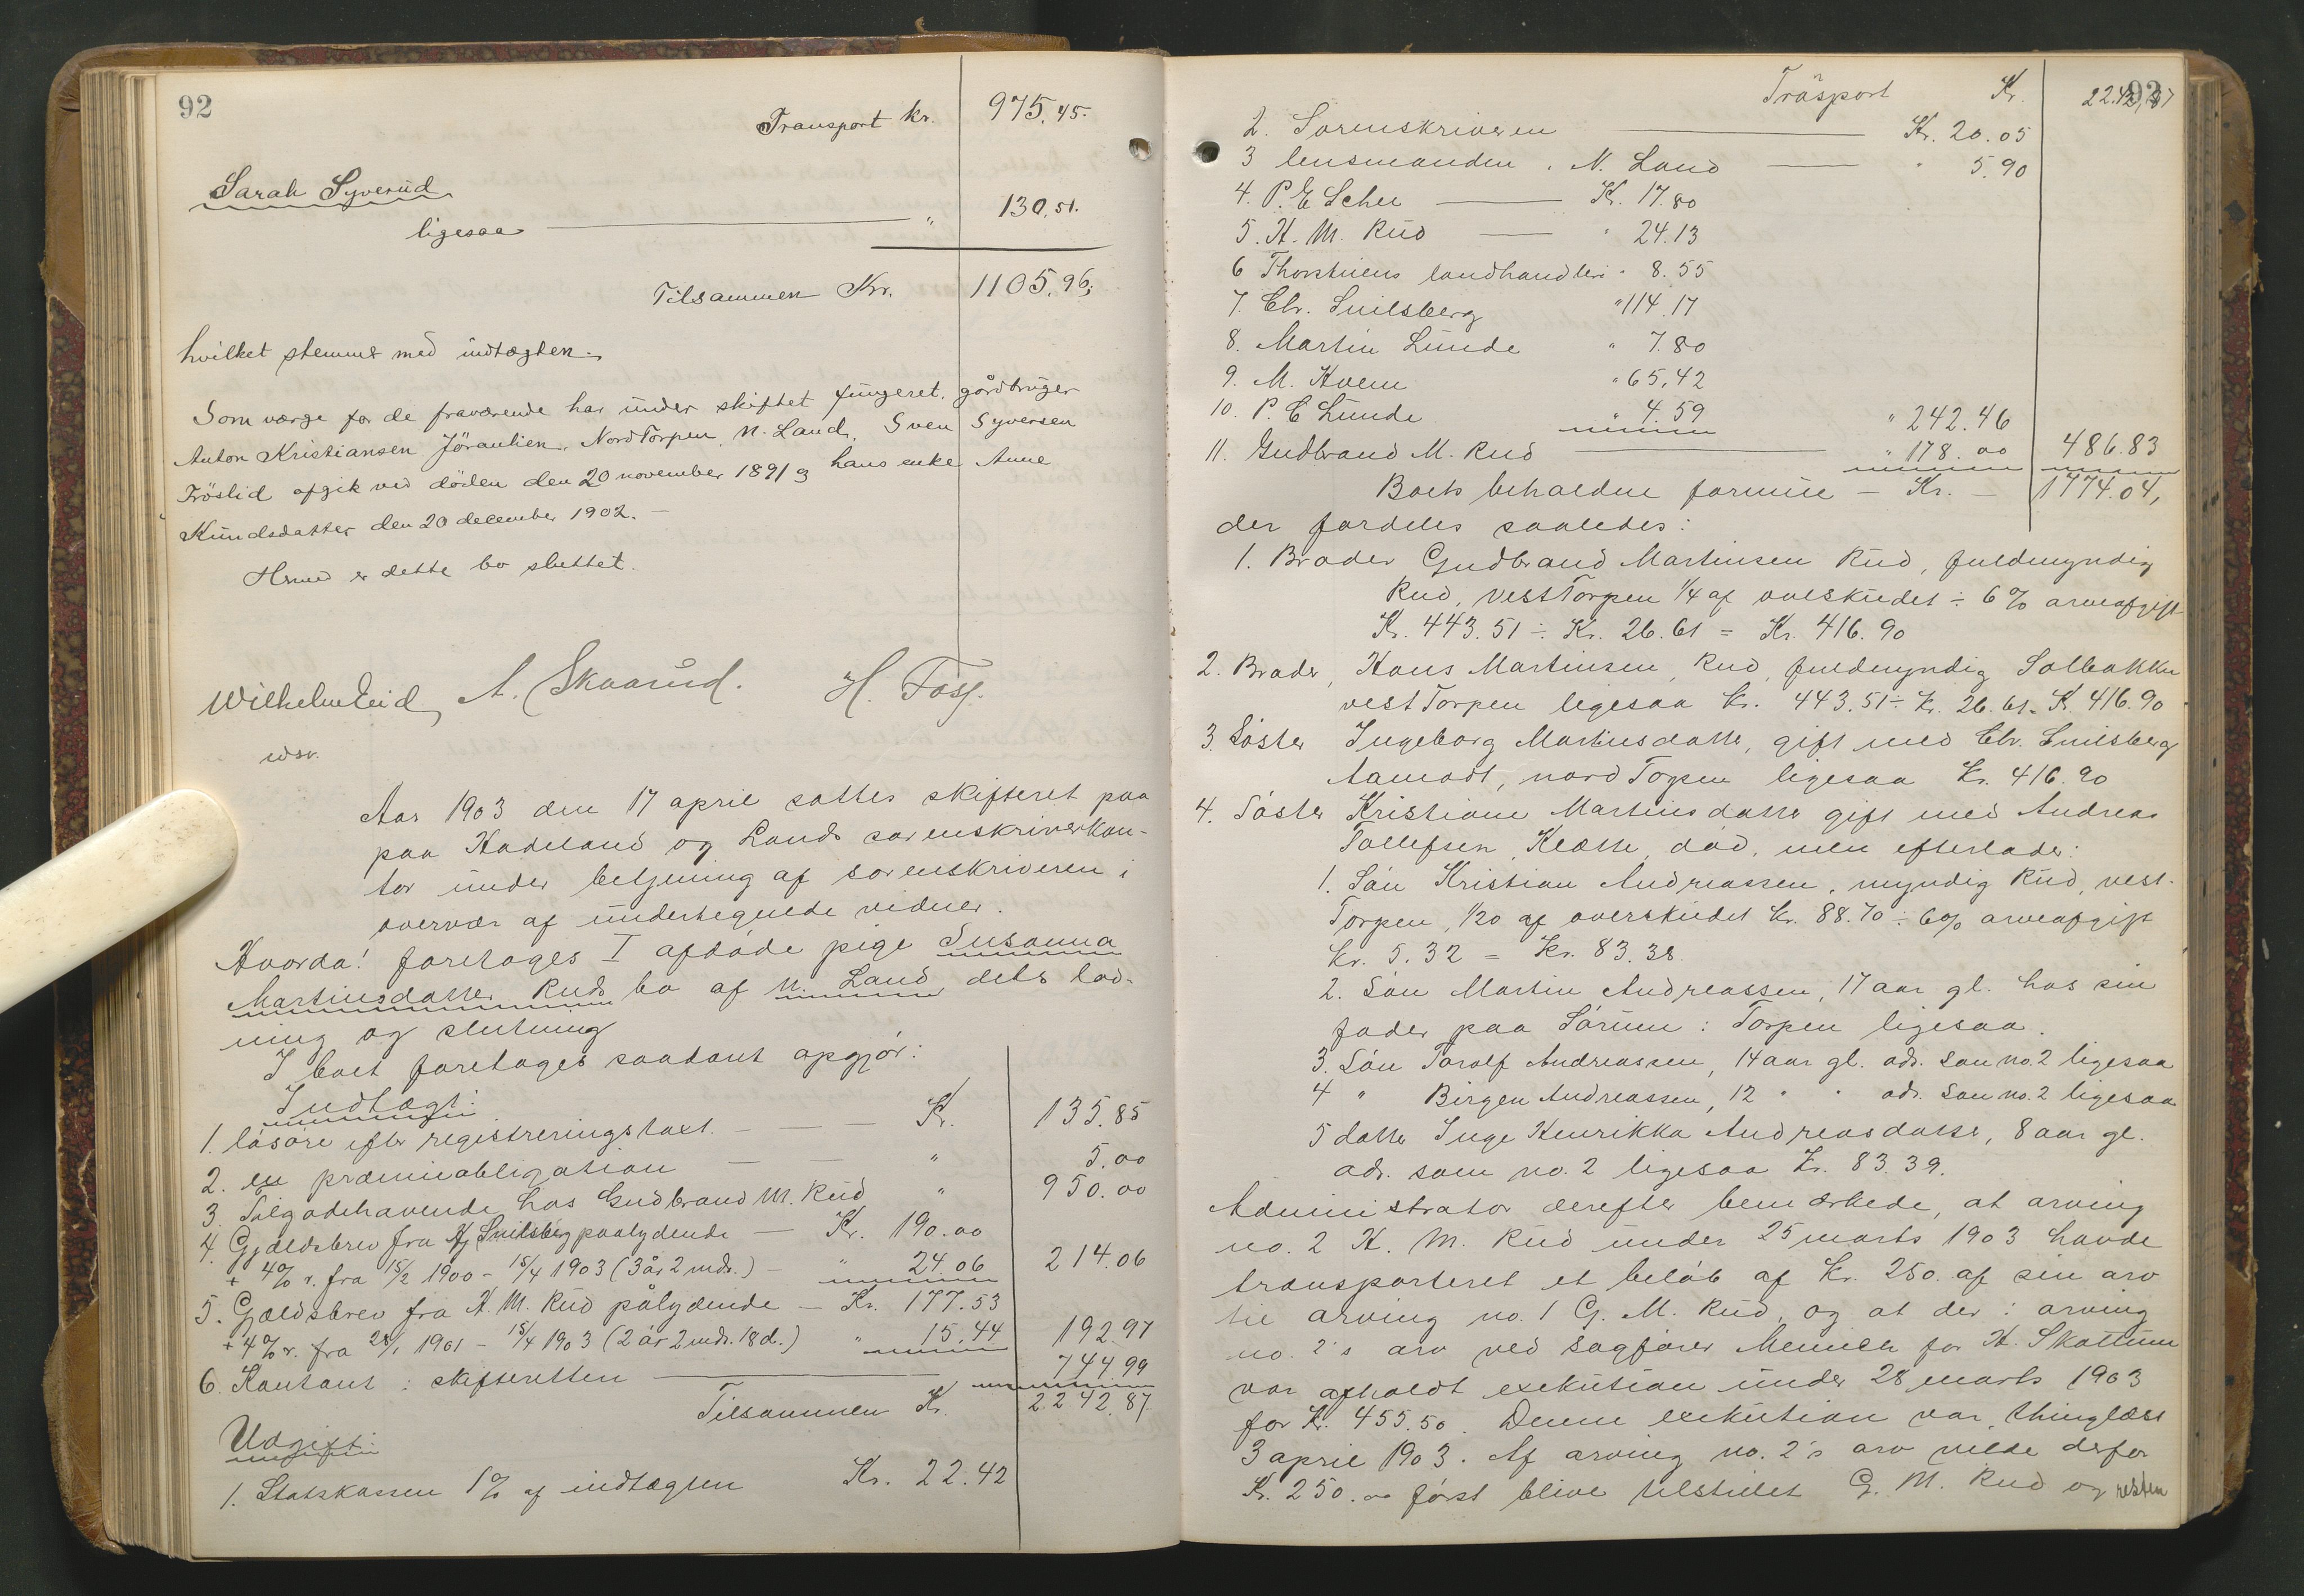 92
Transport kr. 975.45.
Sarah Syverud
ligesaa " 130.51.
Tilsammen Kr. 1105.96;
hvilket stemmer med indtægten.
Som værge for de fraværende har under skiftet fungeret gårdbruger
Anton Kristiansen Jöranlien, Nord Torpen, N. Land. Sven Syversen
Fröslid afgik ved döden den 20 november 1891 og hans enke Anne
Knudsdatter den 20 december 1902. –
Hermed er dette bo sluttet.
Wilhelm Eid A. Skaarud. H. Foss.
wsr.
Aar 1903 den 17 april sattes skifteret paa
paa Hadeland og Lands sorenskriverkon-
tor under betjening af sorenskriveren i
overvær af undertegnede vidner.
Hvorda! foretoges I afdøde pige Susanna
Martinsdatter Ruds bo af N. Land, dets lod-
ning og slutning
I boet foretoges saadant opgjør:
Indtægt:
1. løsøre efter registreringstaxt. – – – Kr. 135.85
2. en præmieobligation – – " 5.00
3. Tilgodehavende hos Gudbrand M. Rud " 950.00
4. Gjældsbrev fra Hj Snilsberg paalydende – Kr. 190.00
+ 4% r. fra 15/2 1900 – 15/4 1903 (3 år 2 mdr.) – " 24.06 214.06
5. Gjældsbrev fra H. M. Rud pålydende – Kr. 177.53
+ 4% r. fra 28/1 1901 – 15/4 1903 (2 år 2 mdr. 18 d.) " 15.44 192.97
6. Kontant i skifteretten 744.99
Tilsammen Kr. 2242.87
Udgift:
1. Statskassen 1% af indtægten Kr. 22.42
93
Tråsport Kr.
2. Sorenskriveren Kr. 20.05
3 lensmanden i N. Land " 5.90
4. P. E Scher Kr. 17.80
5. H. M. Rud " 24.13
6 Thorstuens landhandleri " 8.55
7. Chr. Snilsberg " 114.17
8. Martin Lunde " 7.80
9. M. Hvem " 65.42
10. P. C Lunde " 4.59 " 242.46
11. Gudbrand M. Rud " 178.00 486.83
Boets beholdne formue – Kr. – 1774.04,
der fordeles saaledes:
1. Broder Gudbrand Martinsen Rud, fuldmyndig
Rud, vest Torpen 1/4 af overskudet ÷ 6% arveafgift
Kr. 443.51 ÷ Kr. 26.61 = Kr. 416.90
2. Broder, Hans Martinsen Rud, fuldmyndig Solbakken
vest Torpen ligesaa Kr. 443.51 ÷ Kr. 26.61 = K. 416.90
3. Søster Ingeborg Martinsdatter, gift med Chr. Snilsberg
Aamodt, nord Torpen ligesaa Kr. 416.90
4. Søster Kristiane Martinsdatter gift med Andreas
Tollefsen Klætte, død, men efterlader:
1. Søn Kristian Andreassen, myndig Rud, vest-
Torpen, 1/20 af overskudet Kr. 88.70 ÷ 6% arveafgift
Kr. 5.32 = Kr. 83.38.
2. Søn Martin Andreassen, 17 aar gl. hos sin
fader paa Sørum i Torpen ligesaa.
3. Søn Torolf Andreassen, 14 aar gl. adr. som no. 2 ligesaa
4 " Birger Andreassen, 12 " " adr. som no. 2 ligesaa
5 datter Inga Henrikka Andreasdatter, 8 aar gl.
adr. som no. 2 ligesaa Kr. 83.39.
Administrator derefter bemærkede, at arving
no. 2 H. M. Rud under 25 marts 1903 havde
transporteret et beløb af Kr. 250. af sin arv
til arving no. 1 G. M. Rud, og at der i arving
no. 2's arv ved sagfører for H. Skattum
var afholdt exekution under 28 marts 1903
for Kr. 455.50. Denne exekution var thinglæst
3 april 1903. Af arving no. 2's arv vilde derfor
Kr. 250.00 først blive tilstillet G. M. Rud og resten